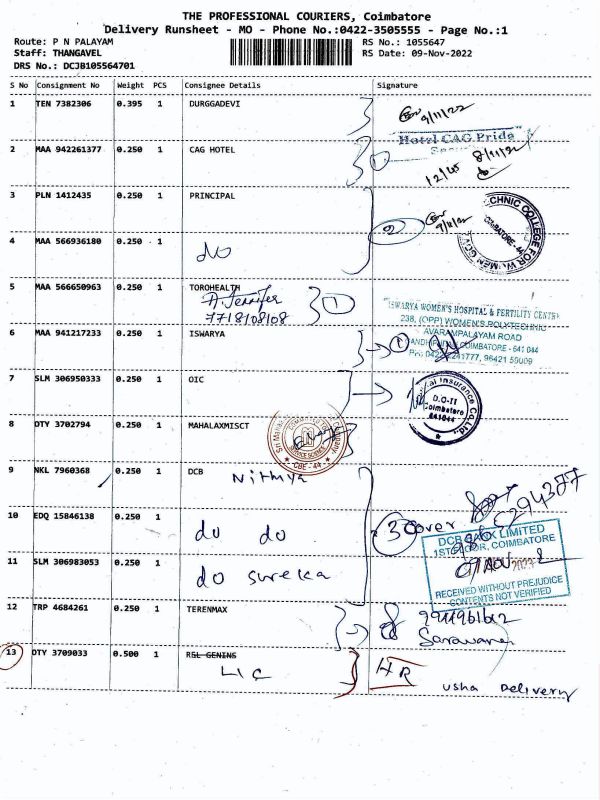 THE PROFESSIONAL COURIERS, Coimbatore
Delivery Runsheet - MO - Phone No.:0422-3505555 - Page No.:1
Route: P N PALAYAM RS No.: 1055647
Staff: THANGAVEL RS Date: 09-Nov-2022
DRS No.: DCJB105564701
S No Consignment No Weight PCS Consignee Details Signature
1 TEN 7382306 0.395 1 DURGGADEVI
9/11/22
2 MAA 942261377 0.250 1 CAG HOTEL
Hotel CAG Pride
1
12/45
3 PLN 1412435 0.250 1 PRINCIPAL
2
4 MAA 566936180 0.250 1
do
5 MAA 566650963 0.250 1 TOROHEALTH
7718108108 1
ISWARYA WOMEN'S HOSPITAL & FERTILITY CENTRE
238, (OPP) WOMEN'S POLYTECHNIC
AVARAMPALAYAM ROAD
COIMBATORE - 641 044
6 MAA 941217233 0.250 1 ISWARYA
1
7 SLM 306950333 0.250 1 OIC
D.O-II
Coimbatore
641044
8 OTY 3702794 0.250 1 MAHALAXMISCT
CBE - 44
9 NKL 7960368 0.250 1 DCB
Nithya
10 EDQ 15846138 0.250 1
do do
3 cover
DCB BANK LIMITED
1ST FLOOR, COIMBATORE
11 SLM 306983053 0.250 1
do sureka
RECEIVED WITHOUT PREJUDICE
CONTENTS NOT VERIFIED
12 TRP 4684261 0.250 1 TERENMAX
13 OTY 3709033 0.500 1 REL GENINS
LIC
HR
usha Delivery